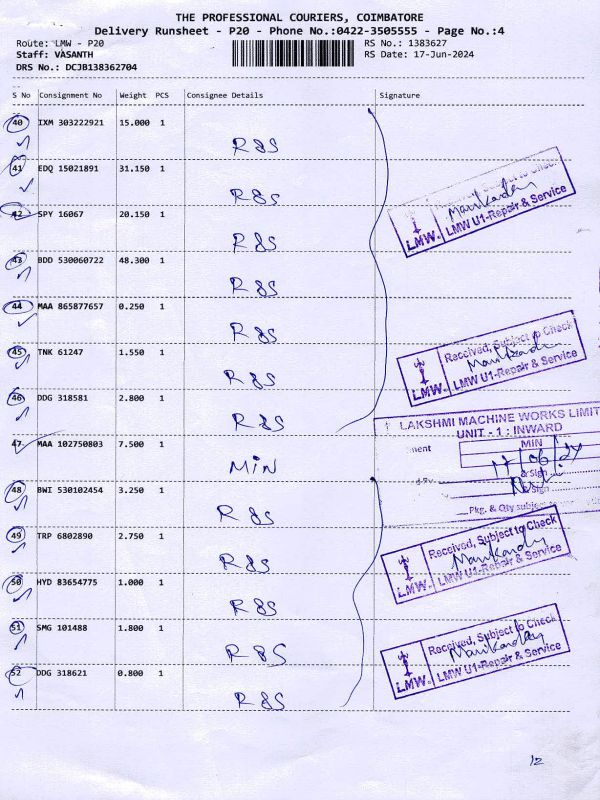 THE PROFESSIONAL COURIERS, COIMBATORE
Delivery Runsheet - P20 - Phone No.:0422-3505555 - Page No.:4
Route: LMW - P20
RS No.: 1383627
Staff: VASANTH
RS Date: 17-Jun-2024
DRS No.: DCJB138362704
S No Consignment No Weight PCS Consignee Details Signature
40 IXM 303222921 15.000 1
R&S
41 EDQ 15021891 31.150 1
R&S
42 SPY 16067 20.150 1
R&S
43 BDD 530060722 48.300 1
R&S
44 MAA 865877657 0.250 1
R&S
45 TNK 61247 1.550 1
R&S
46 DDG 318581 2.800 1
R&S
47 MAA 102750803 7.500 1
MIN
48 BWI 530102454 3.250 1
R&S
49 TRP 6802890 2.750 1
R&S
50 HYD 83654775 1.000 1
R&S
51 SMG 101488 1.800 1
R&S
52 DDG 318621 0.800 1
R&S
to Check
Manikanday
LMW. LMW U1-Repair & Service
Received, Subject to Check
LMW. LMW U1-Repair & Service
LAKSHMI MACHINE WORKS LIMIT
UNIT - 1 : INWARD
MIN
17/06/24
& Sign
& Sign
Pkg. & Qty subject
Received, Subject to Check
Manikanday
LMW. LMW U1-Repair & Service
Received, Subject to Check
Manikanday
LMW. LMW U1-Repair & Service
12